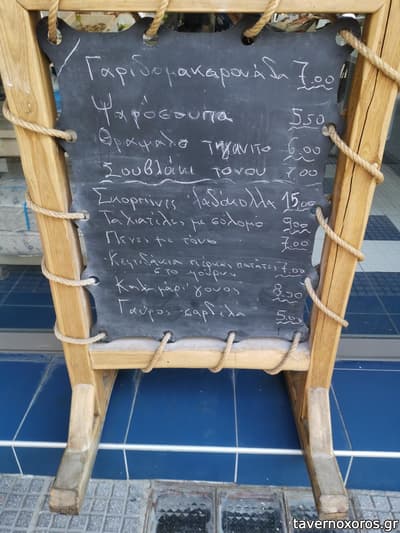 Γαριδομακαρονάδα 7,00
Ψαρόσουπα 5,50
Θράψαλο τηγανιτο 6,00
Σουβλάκι τόνου 7,00
Σκορπίνες λαδόκολλα 15,00
Ταλιατέλες με σολομό 9,00
Πενες με τονο 7,00
πατάτες 7,00
στο φούρνο
Καλαμάρι γόνος 8,50
Γαύρος - σαρδέλα 5,00
tavernoxoros.gr